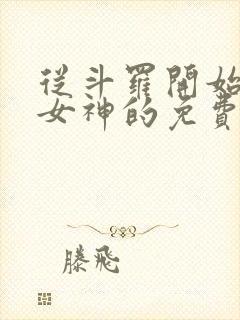 從斗羅開始
女神的免費
滕飛